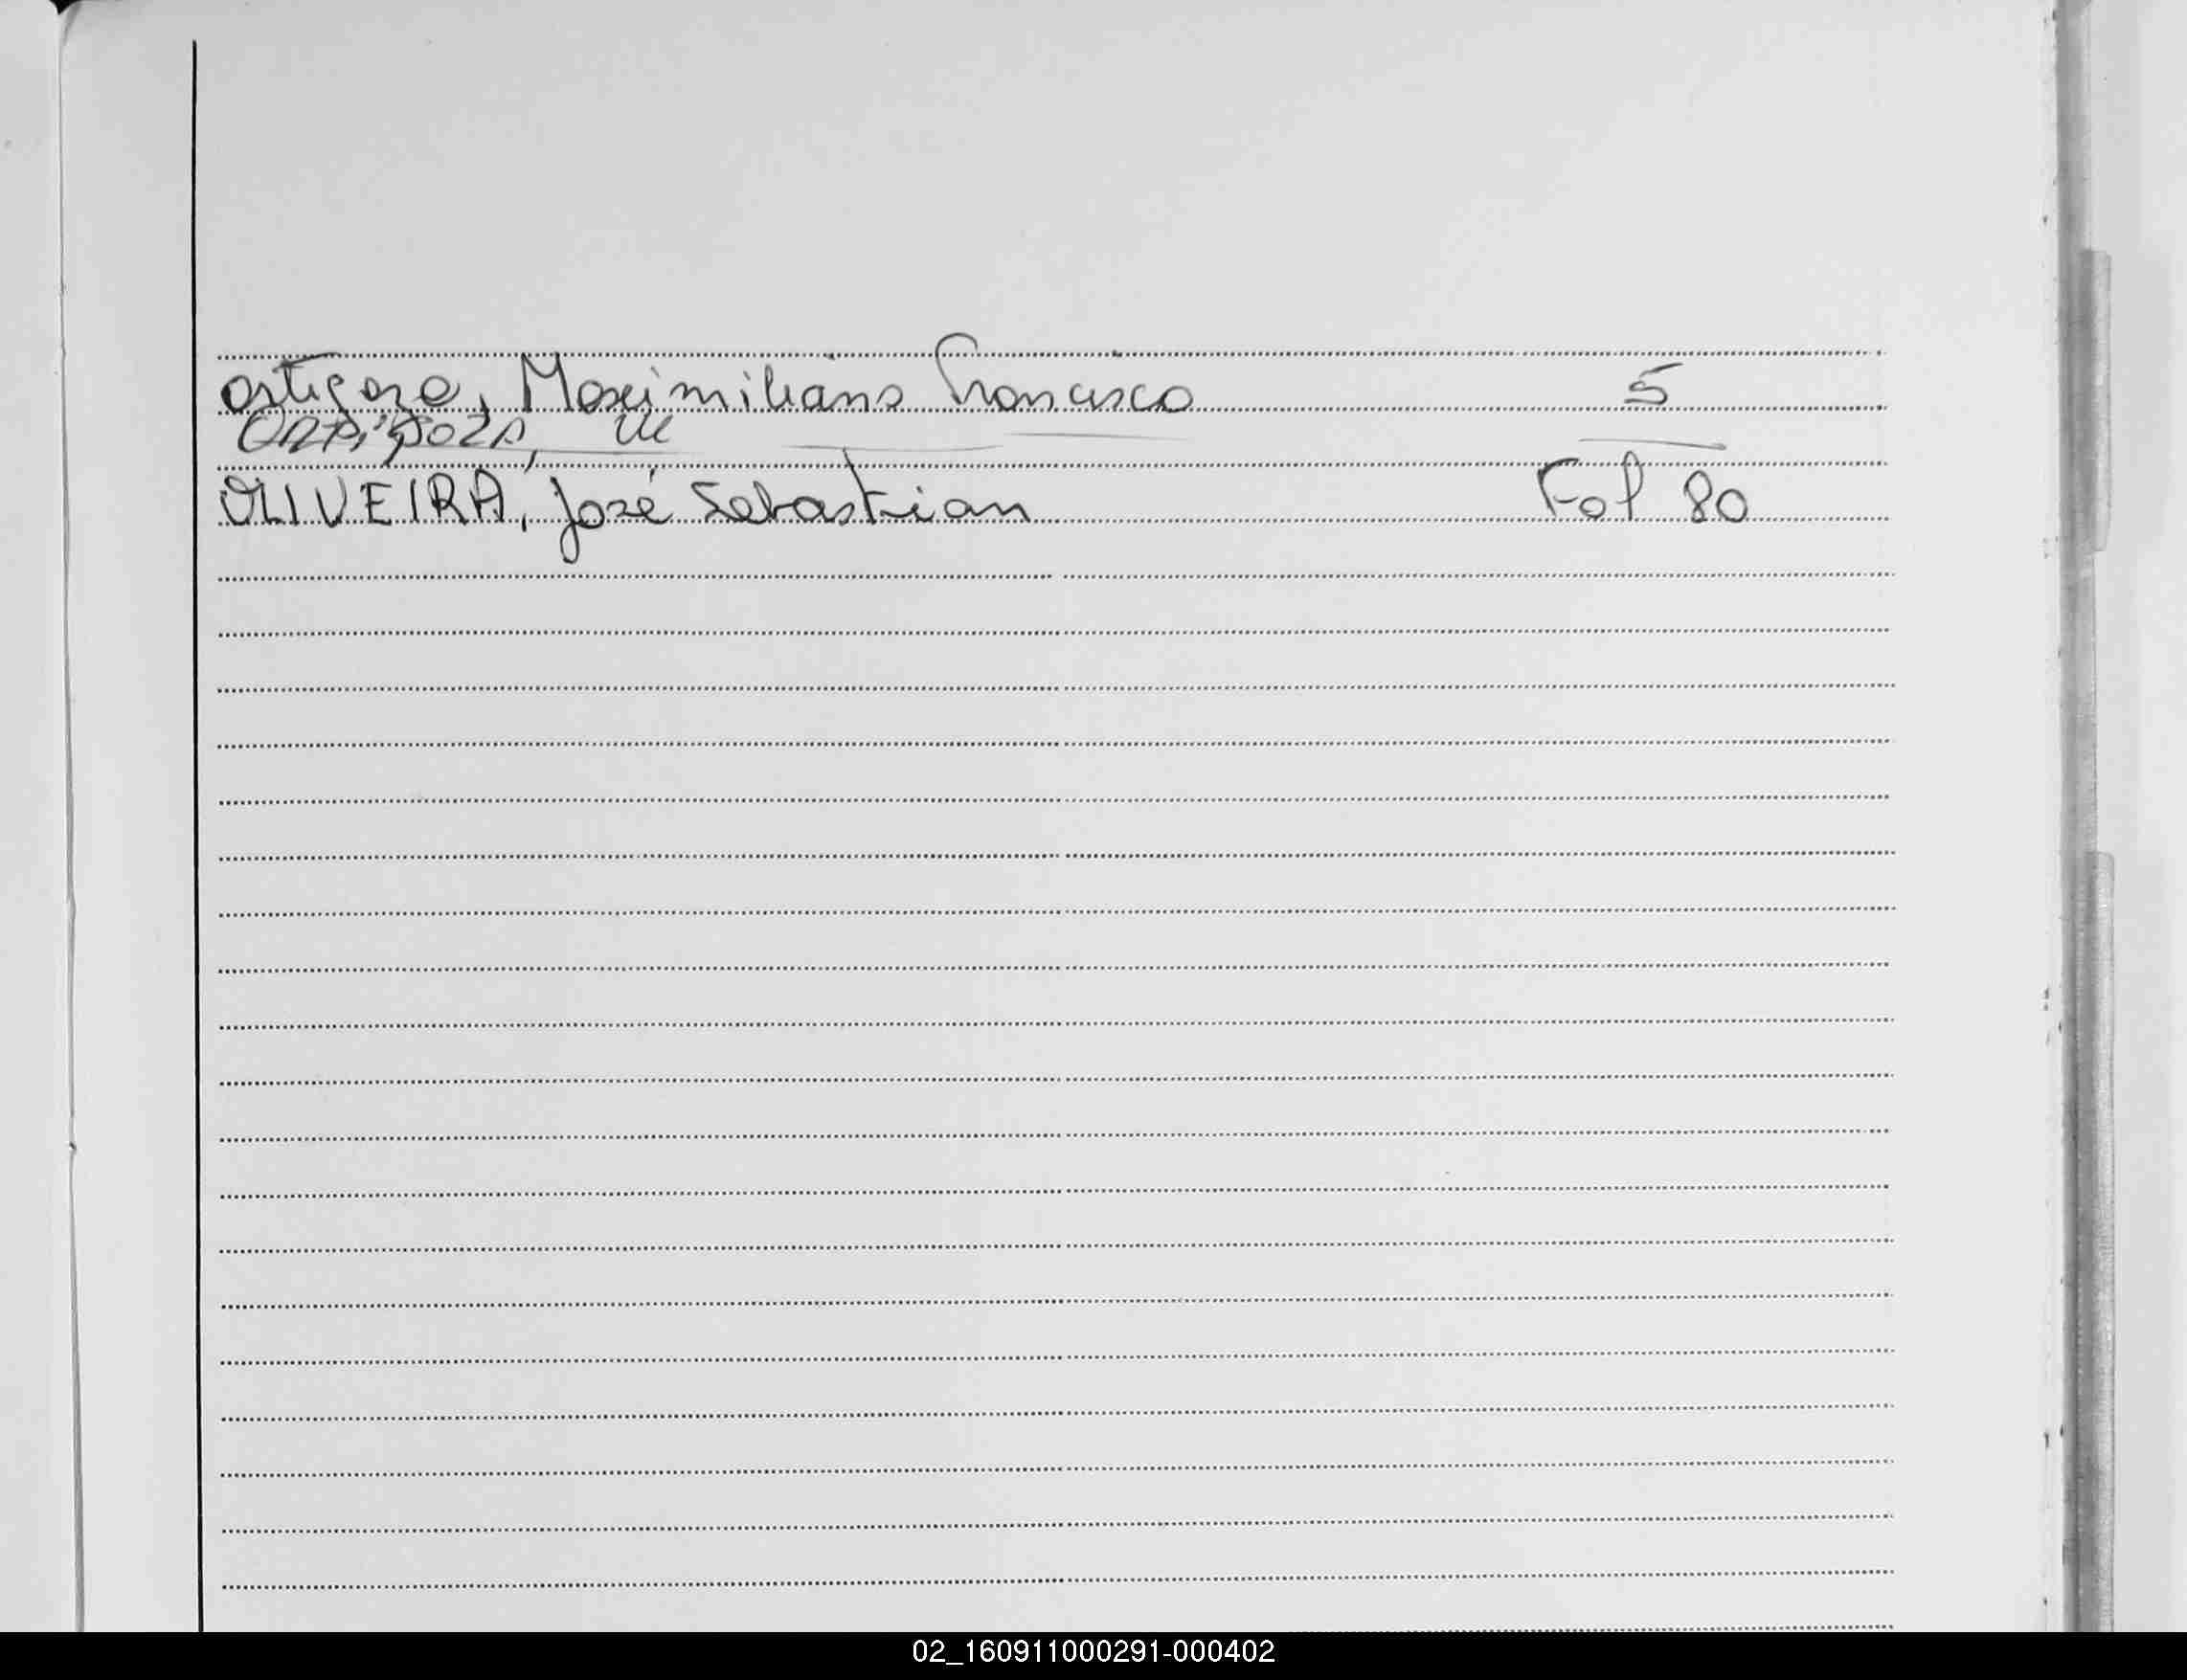 Ortigoza, Maximiliano Francisco 5
Ortigoza,
OLIVEIRA, José Sebastian Fol 80
02_160911000291-000402